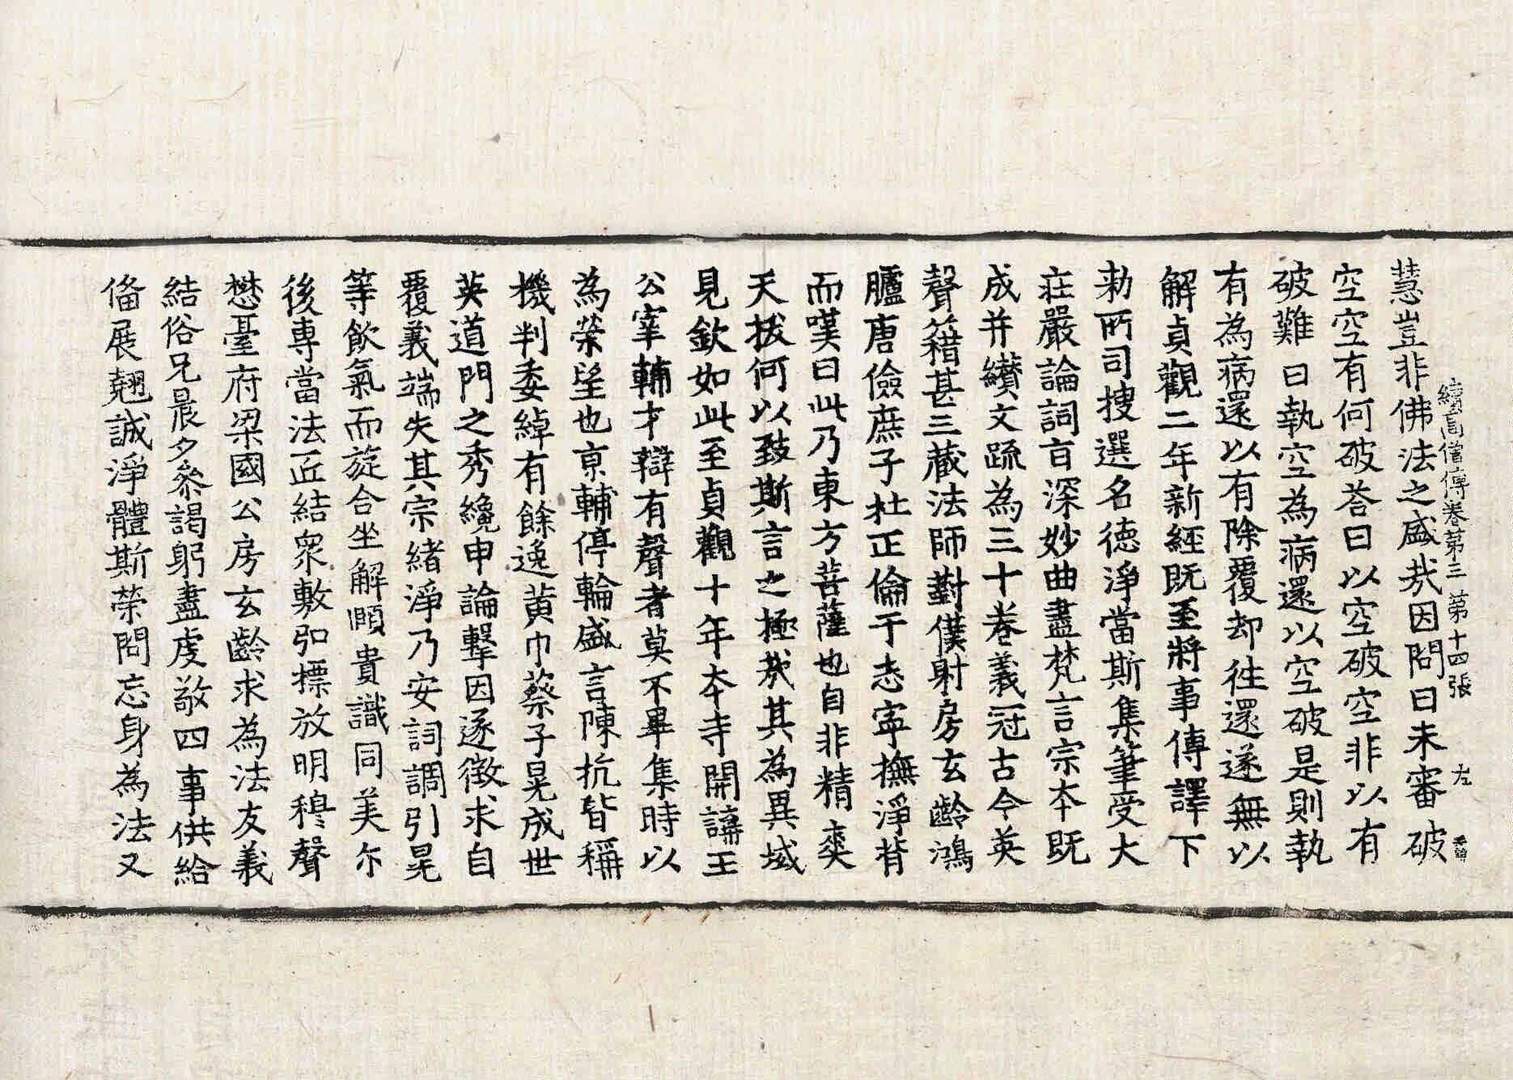 慧豈非佛法之盛㢤因問曰未審破
續高僧傳卷第三 第十四張 左
空空有何破荅曰以空破空非以有
破難曰執空為病還以空破是則執
有為病還以有除覆却徃還遂無以
解貞觀二年新經既至將事傳譯下
勑所司搜選名德淨當斯集筆受大
莊嚴論詞旨深妙曲盡梵言宗本既
成并纘文䟽為三十卷義冠古今英
聲籍甚三藏法師對僕射房玄齡鴻
臚唐儉庶子杜正倫于志寧撫淨背
而嘆曰此乃東方菩薩也自非精爽
天拔何以致斯言之極㢤其為異域
見欽如此至貞觀十年本寺開講王
公宰輔才辯有聲者莫不畢集時以
為榮望也京輔停輪盛言陳抗皆稱
機判委綽有餘逸黄巾蔡子晃成世
英道門之秀纔申論擊因遂徵求自
覆義端失其宗緒淨乃安詞調引晃
等飲氣而旋合坐解頤貴識同美尒
後専當法匠結衆敷弘標放明穆聲
懋臺府梁國公房玄齡求為法友義
結俗兄晨夕叅謁躬盡虔敬四事供給
俻展翹誠淨體斯榮問忘身為法又